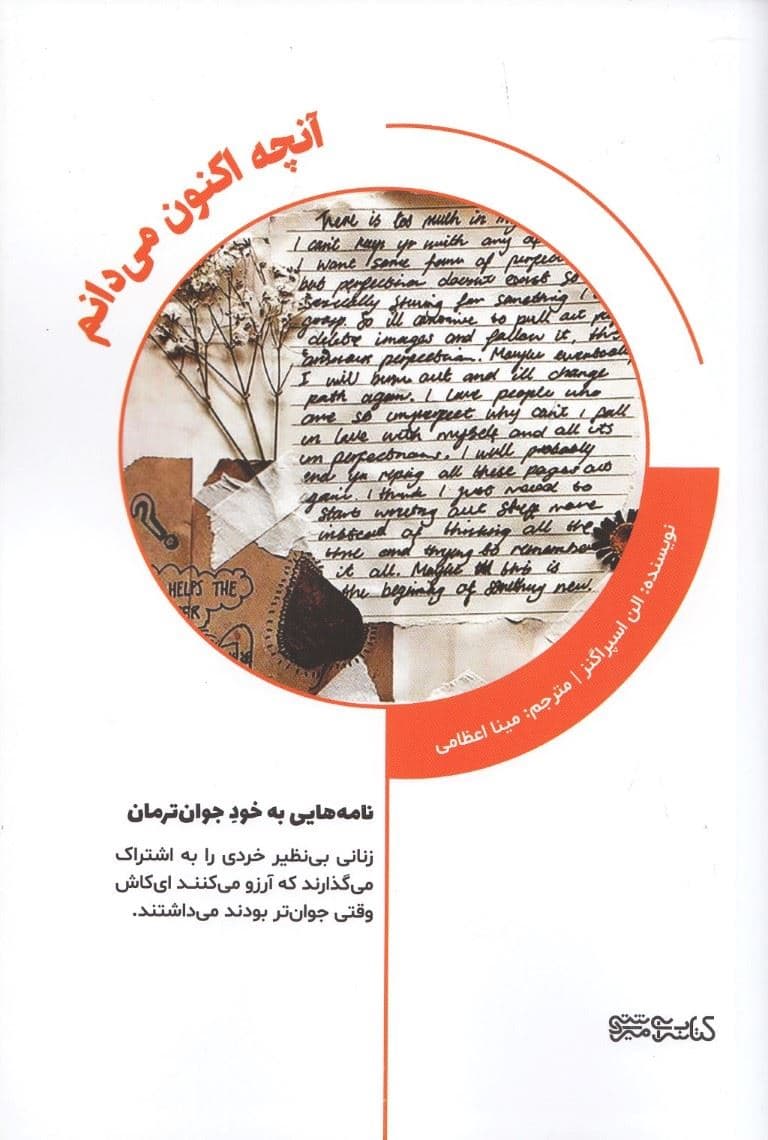 آنچه اکنون می‌دانم
There is too much in my
I can't keep up with any of
I want some form of perfec
but perfection doesn't exist so
striving for something I
grasp. So ill continue to pull out
delete images and follow it, this
perfectionism. Maybe eventually
I will burn out and ill change
path again. I love people who
are so imperfect why can't I fall
in love with myself and all its
imperfections. I will probably
end up ripping all these pages out
again. I think I just need to
start writing out stuff more
instead of thinking all the
time and trying to remember
it all. Maybe this is
the beginning of something new.
?
HELPS THE
نویسنده: الن اسپراگنز | مترجم: مینا اعظامی
نامه‌هایی به خودِ جوان‌ترمان
زنانی بی‌نظیر خردی را به اشتراک
می‌گذارند که آرزو می‌کنند ای‌کاش
وقتی جوان‌تر بودند می‌داشتند.